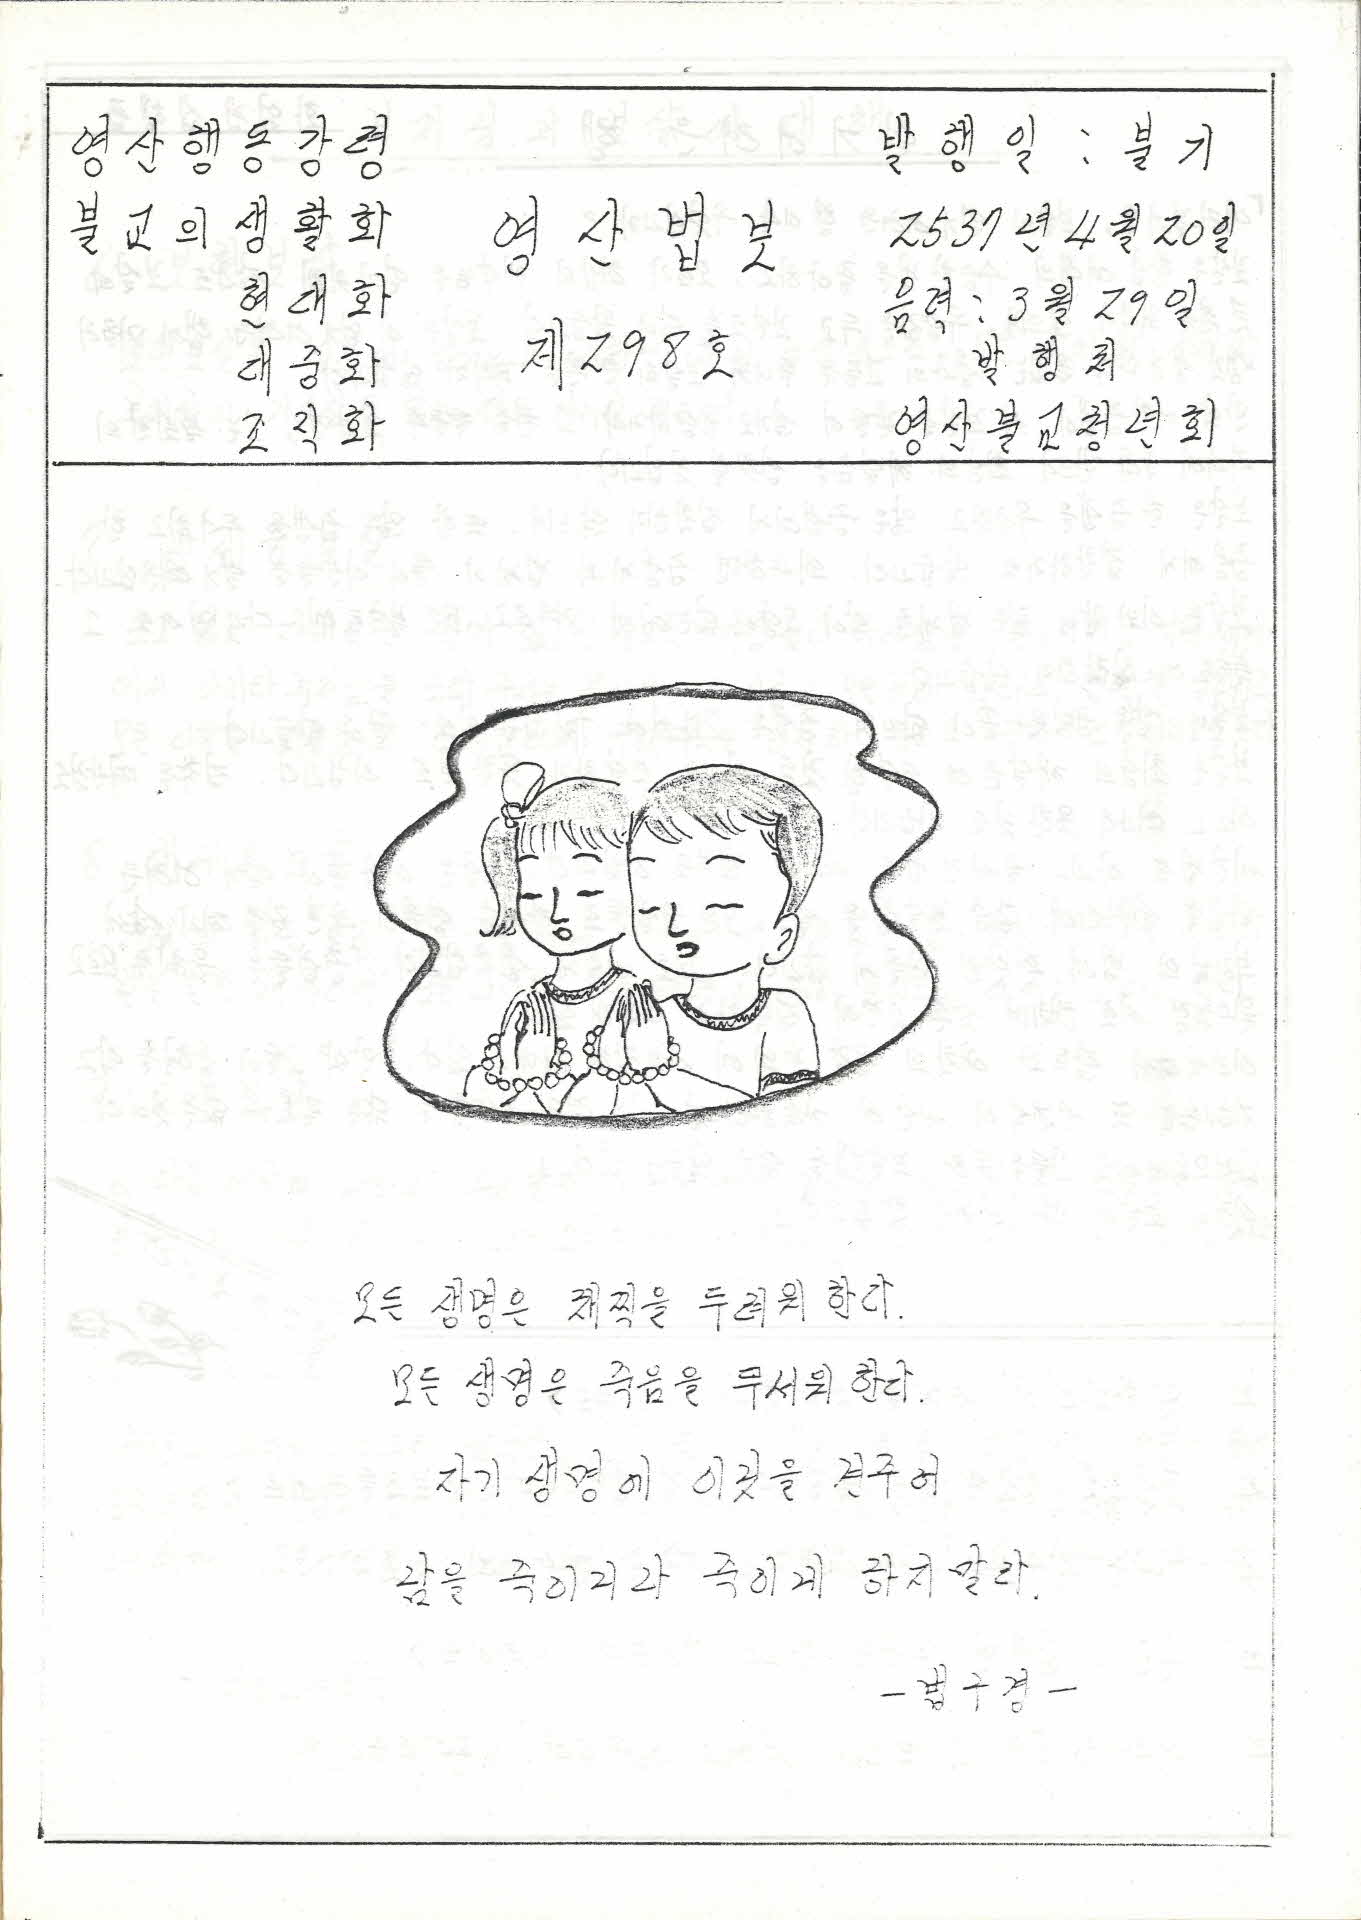 영산행동강령
불교의생활화
현대화
대중화
조직화
영산법붓
제298호
발행일 : 불기
2537년 4월 20일
음력 : 3월 29일
발행처
영산불교청년회
모든 생명은 채찍을 두려워 한다.
모든 생명은 죽음을 무서워 한다.
자기 생명에 이것을 견주어
남을 죽이거나 죽이게 하지말라.
- 법구경 -